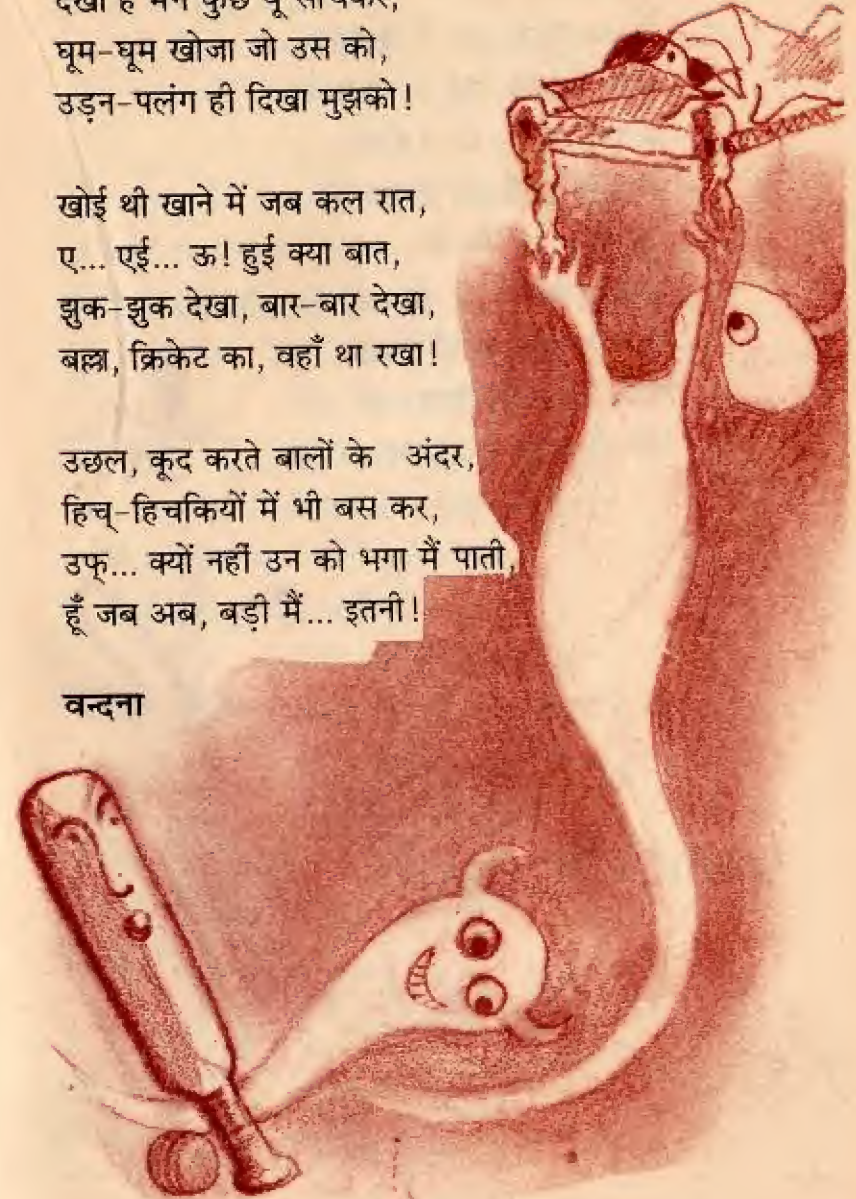 घूम-घूम खोजा जो उस को,
उड़न-पलंग ही दिखा मुझको!
खोई थी खाने में जब कल रात,
ए... एई... ऊ! हुई क्या बात,
झुक-झुक देखा, बार-बार देखा,
बल्ला, क्रिकेट का, वहाँ था रखा!
उछल, कूद करते बालों के अंदर,
हिच्-हिचकियों में भी बस कर,
उफ्... क्यों नहीं उन को भगा मैं पाती,
हूँ जब अब, बड़ी मैं... इतनी!
वन्दना